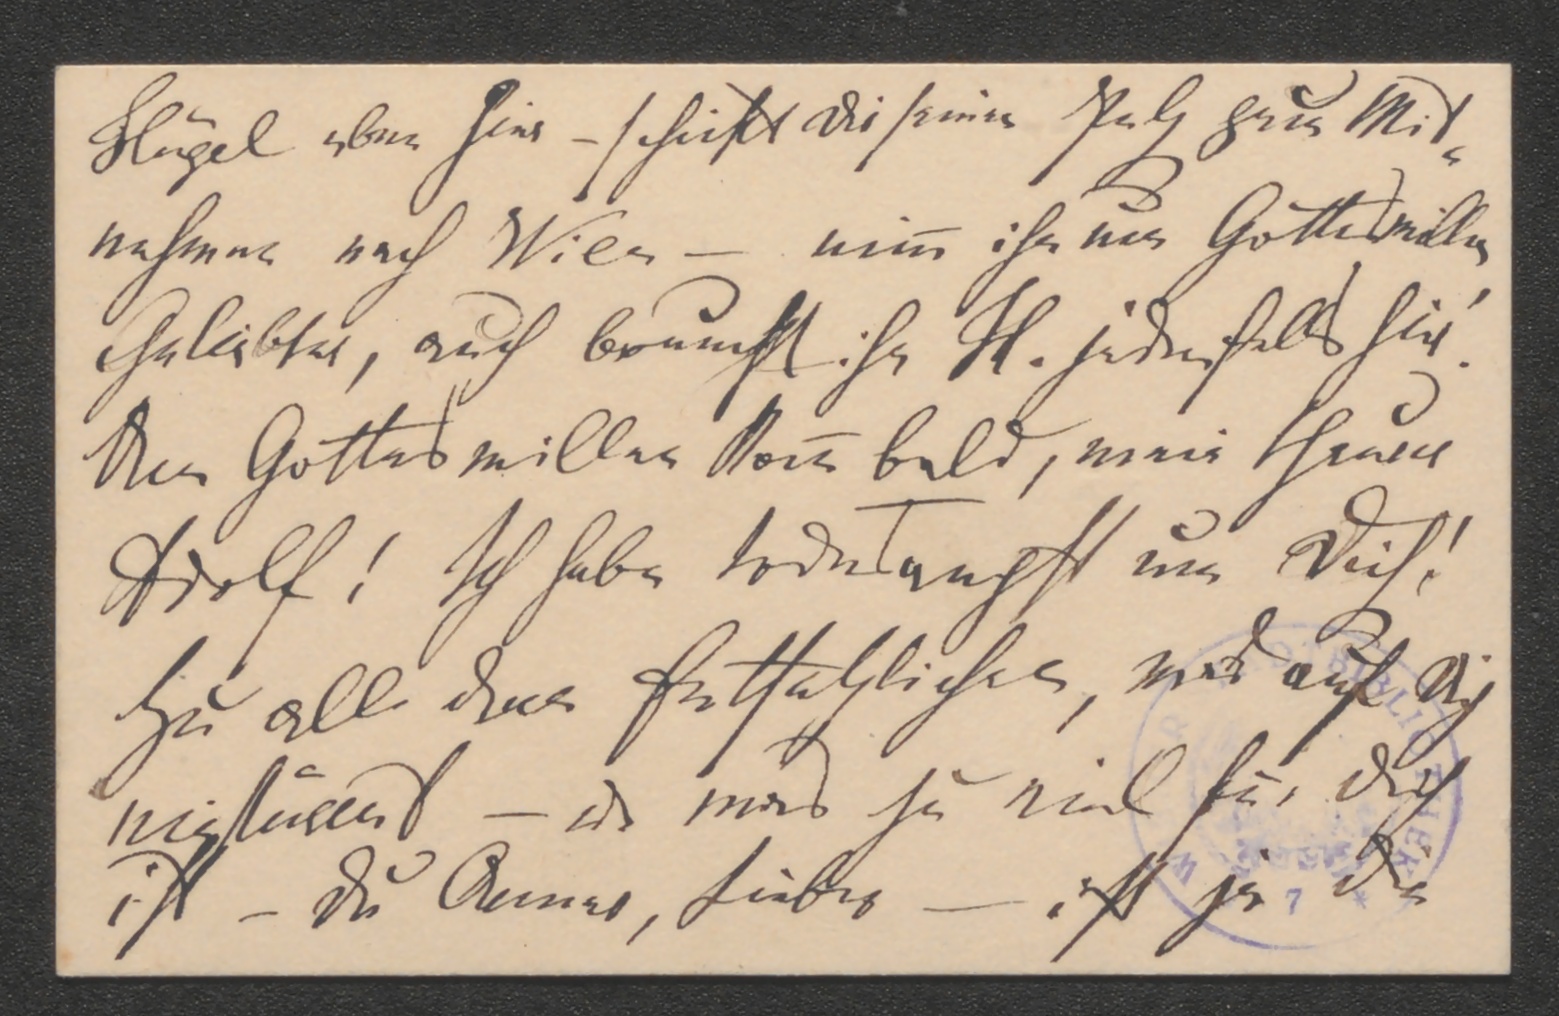 Flügel eben hier – schickt dir seinen Pelz zum Mit-
nehmen nach Wien – nim̄ ihn um Gotteswillen,
Geliebter, auch brauchst ihn H. jedenfalls hier!
Um Gotteswillen kom̄ bald, mein theurer
Adolf! Ich habe Todesangst um Dich!
Zu all dem Entsetzlichen, was auf Dich
einstürmt – u was zu viel für Dich
ist – Du Armer, Lieber – ist ja die
STADTBIBLIOTHEK
W
7 *